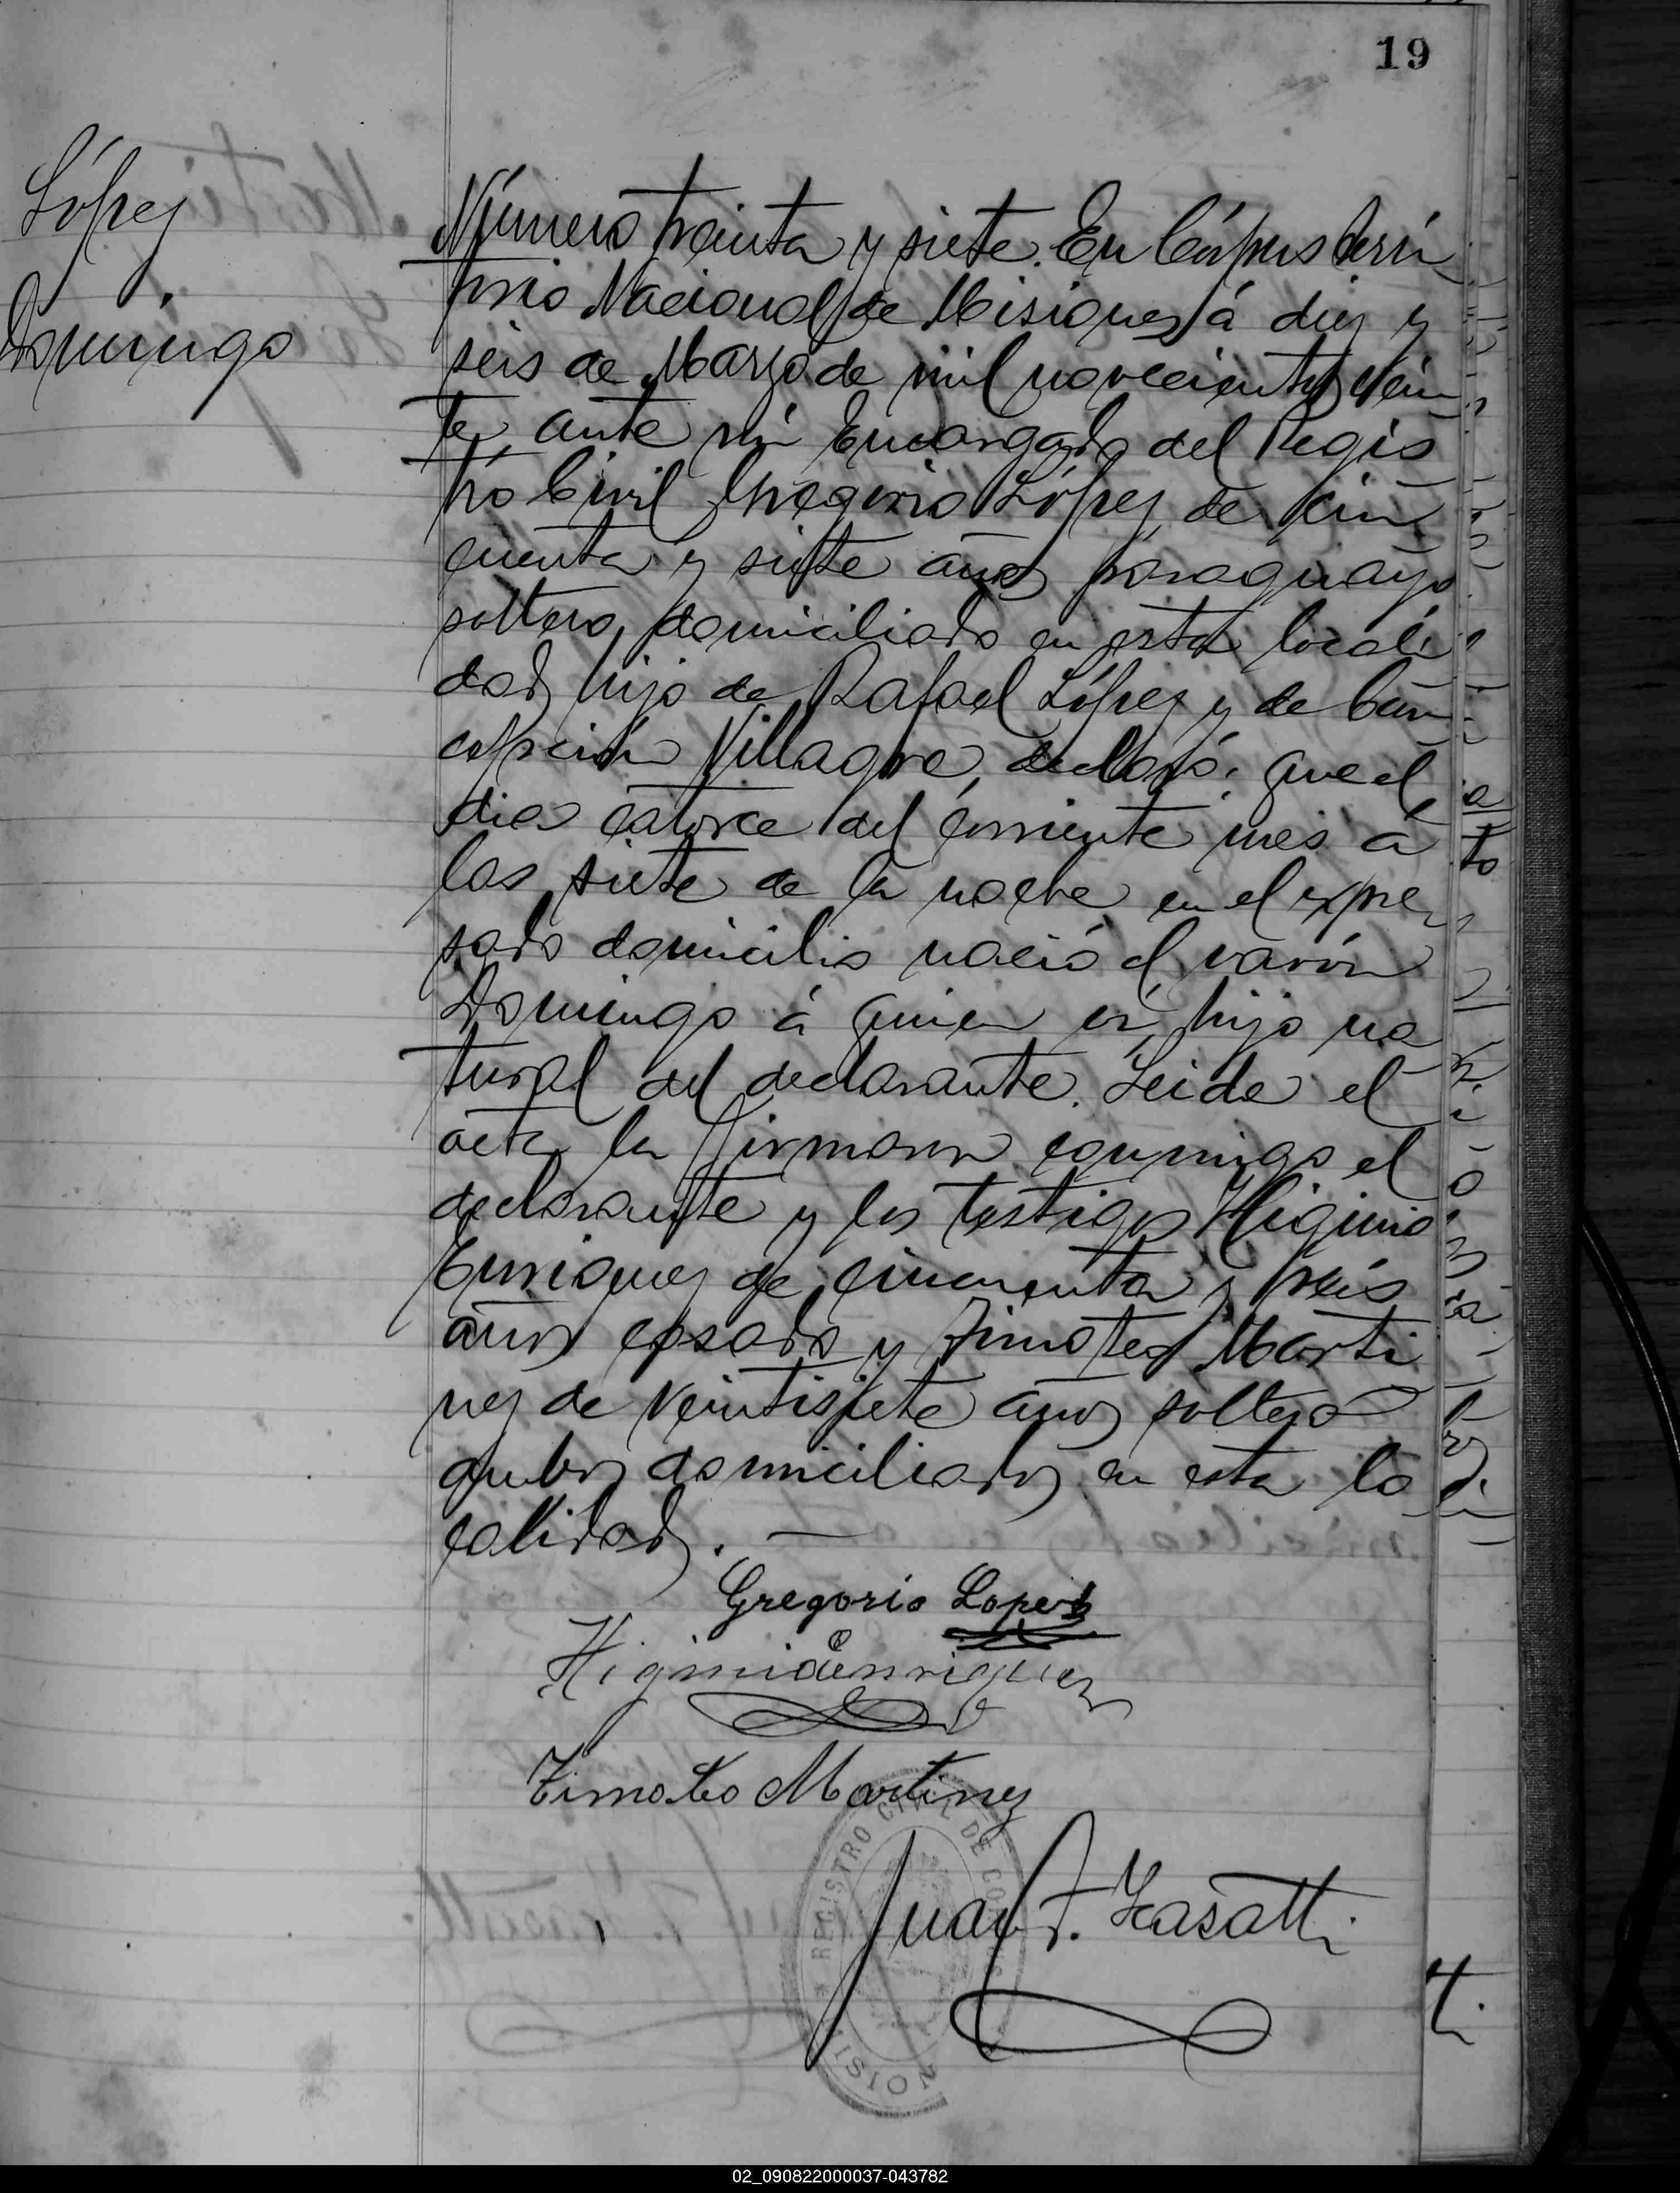 19
López
Domingo
Número treinta y siete. En Córpus Terri
torio Nacional de Misiones á diez y
seis de Marzo de mil novecientos vein
te, ante mí Encargado del Regis
tro Civil Gregorio López de cin
cuenta y siete años paraguayo
soltero, domiciliado en esta locali
dad, hijo de Rafael López y de Con
cepción Villagra, declaró: que el
dia catorce del corriente mes á
las siete de la noche en el expre
sado domicilio nació el varón
Domingo á quien es hijo na
tural del declarante. Leida el
acta la firmaron conmigo el
declarante y los testigos Higinio
Enriquez de cincuenta y seis
años casado y Timoteo Marti
nez de veintisiete años soltero
ambos domiciliados en esta lo
calidad. —
Gregorio Lopez
Higinio Enriquez
Timoteo Martinez
Juan F.
REGISTRO CIVIL DE CORPUS
MISIONES
02_090822000037-043782